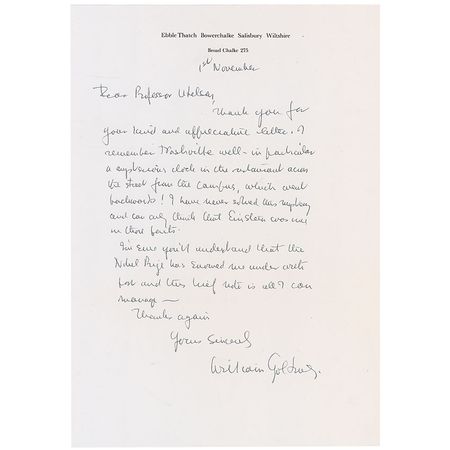 Ebble Thatch Bowerchalke Salisbury Wiltshire
Broad Chalke 275
1st November
Dear Professor
Thank you for
your kind and appreciative letter. I
remember Nashville well - in particular
a mysterious clock in the restaurant across
the street from the campus, which went
backwards! I have never solved this mystery
and can only think that Einstein was once
in those parts.
I'm sure you'll understand that the
Nobel Prize has snowed me under with
post and this brief note is all I can
manage -
Thanks again
Yours sincerely
William Golding.